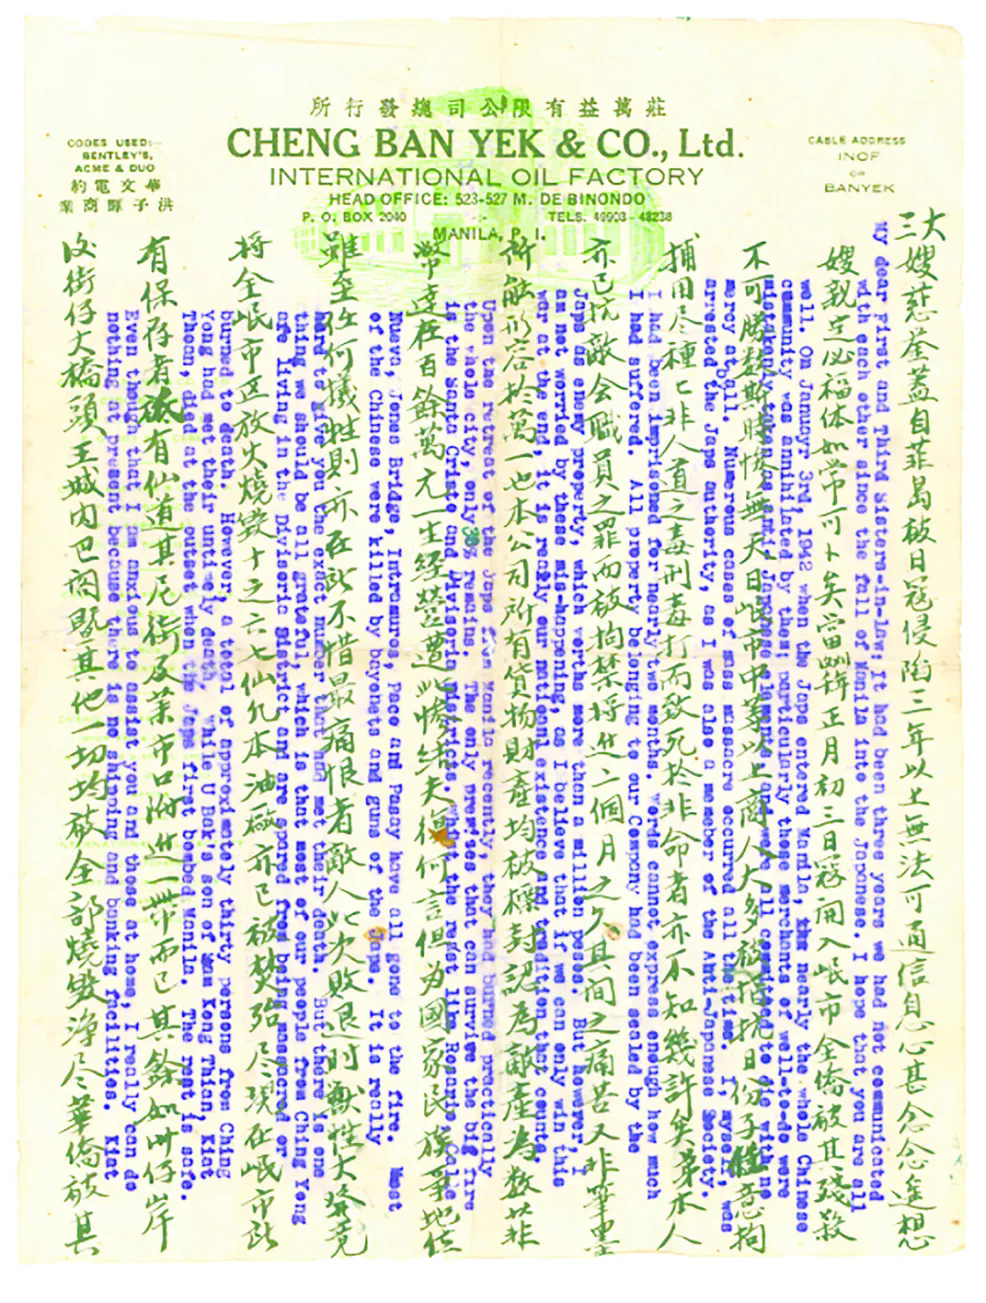 莊萬益有限公司總發行所
CHENG BAN YEK & CO., Ltd.
INTERNATIONAL OIL FACTORY
HEAD OFFICE: 523-527 M. DE BINONDO
P. O. BOX 2040 -:- TELS. 49903 - 48238
MANILA, P. I.
CODES USED:-
BENTLEY'S,
ACME & DUO
華文電約
洪子暉商業
CABLE ADDRESS
INOF
OR
BANYEK
大三嫂慈蓋自菲島被日寇侵陷三年以上無法可通信息心甚念念遙想
My dear First and Third Sisters-in-law; It had been three years we had not communicated
with each other since the fall of Manila into the Japanese. I hope that you are all
嫂親定必福体如常可卜矣當正月初三日寇開入岷市全僑被其殘殺
well. On January 3rd, 1942 when the Japs entered Manila, the nearly the whole Chinese
community was annihilated by them; particularly those merchants of well-to-do were
不可勝數斯時慘無天日岷市中華以上商人大多被指抗日份子任意拘
mistakenly taken as anti-Japanese elements, and were all committed to die with no
mercy at all. Numerous cases of mass massacre occurred all the times. I, myself, was
捕用尽種々非人道之毒刑毒打而致死於非命者亦不知幾許矣弟本人
arrested by the Japs authority, as I was also a memeber of the Anti-Japanese Society.
I had been imprisoned for nearly two months. Words cannot express enough how much
亦已抗敵会職員之罪而被拘禁將近二個月之久其間之痛苦又非筆墨
I had suffered. All property belonging to our Company had been sealed by the
Japs as enemy property, which worths more then a million pesos. But however, I
所能形容於萬一也本公司所有貨物財產均被標封認為敵產為数菲
as not worried by these mis-happening, as I believe that if we can only win this
war at the end, it is really our national existence and tradition that counts.
幣達在百餘萬元一生經營遭此慘结夫復何言但为國家民族爭地位
Upon the retreat of the Japs from Manila recently, they had burned practically
the whole city, only 3% remains. The only premises that can survive the big fire
is the Santa Cristo and Divisoria Districts. What the rest like Rosario, Colle
雖至任何犧牲則亦在所不惜最痛恨者敵人此次敗退时獸性大發竟
Nueva, Jones Bridge, Intramuros, Paco and Pasay have all gone to the fire. Most
of the Chinese were killed by bayonets and guns of the Japs. It is really
將全岷市正放火燒燬十之六七仙允本油廠亦已被焚殆尽現在岷市所
hard to give you the exact number that had met their death. But there is one
thing we should be all grateful, which is that most of our people from Ching Yong
are living in the Divisoria District and are spared from being massacred or
有保存者祗有仙道其尼街及菜市口附近一帶而已其餘如州仔岸
burned to death. However, a total of approximately thirty persons from Ching
Yong had met their untimely death, while U Bok's son of Kam Kong Thian, Kiat
Thoan, died at the outset when the Japs first bombed Manila. The rest is safe.
后街仔大橋頭王城内巴閣暨其他一切均被全部燒燬淨尽華僑被其
Even though that I am anxious to assist you and those at home, I really can do
nothing at present because there is no shipping and banking facilities. Kiat